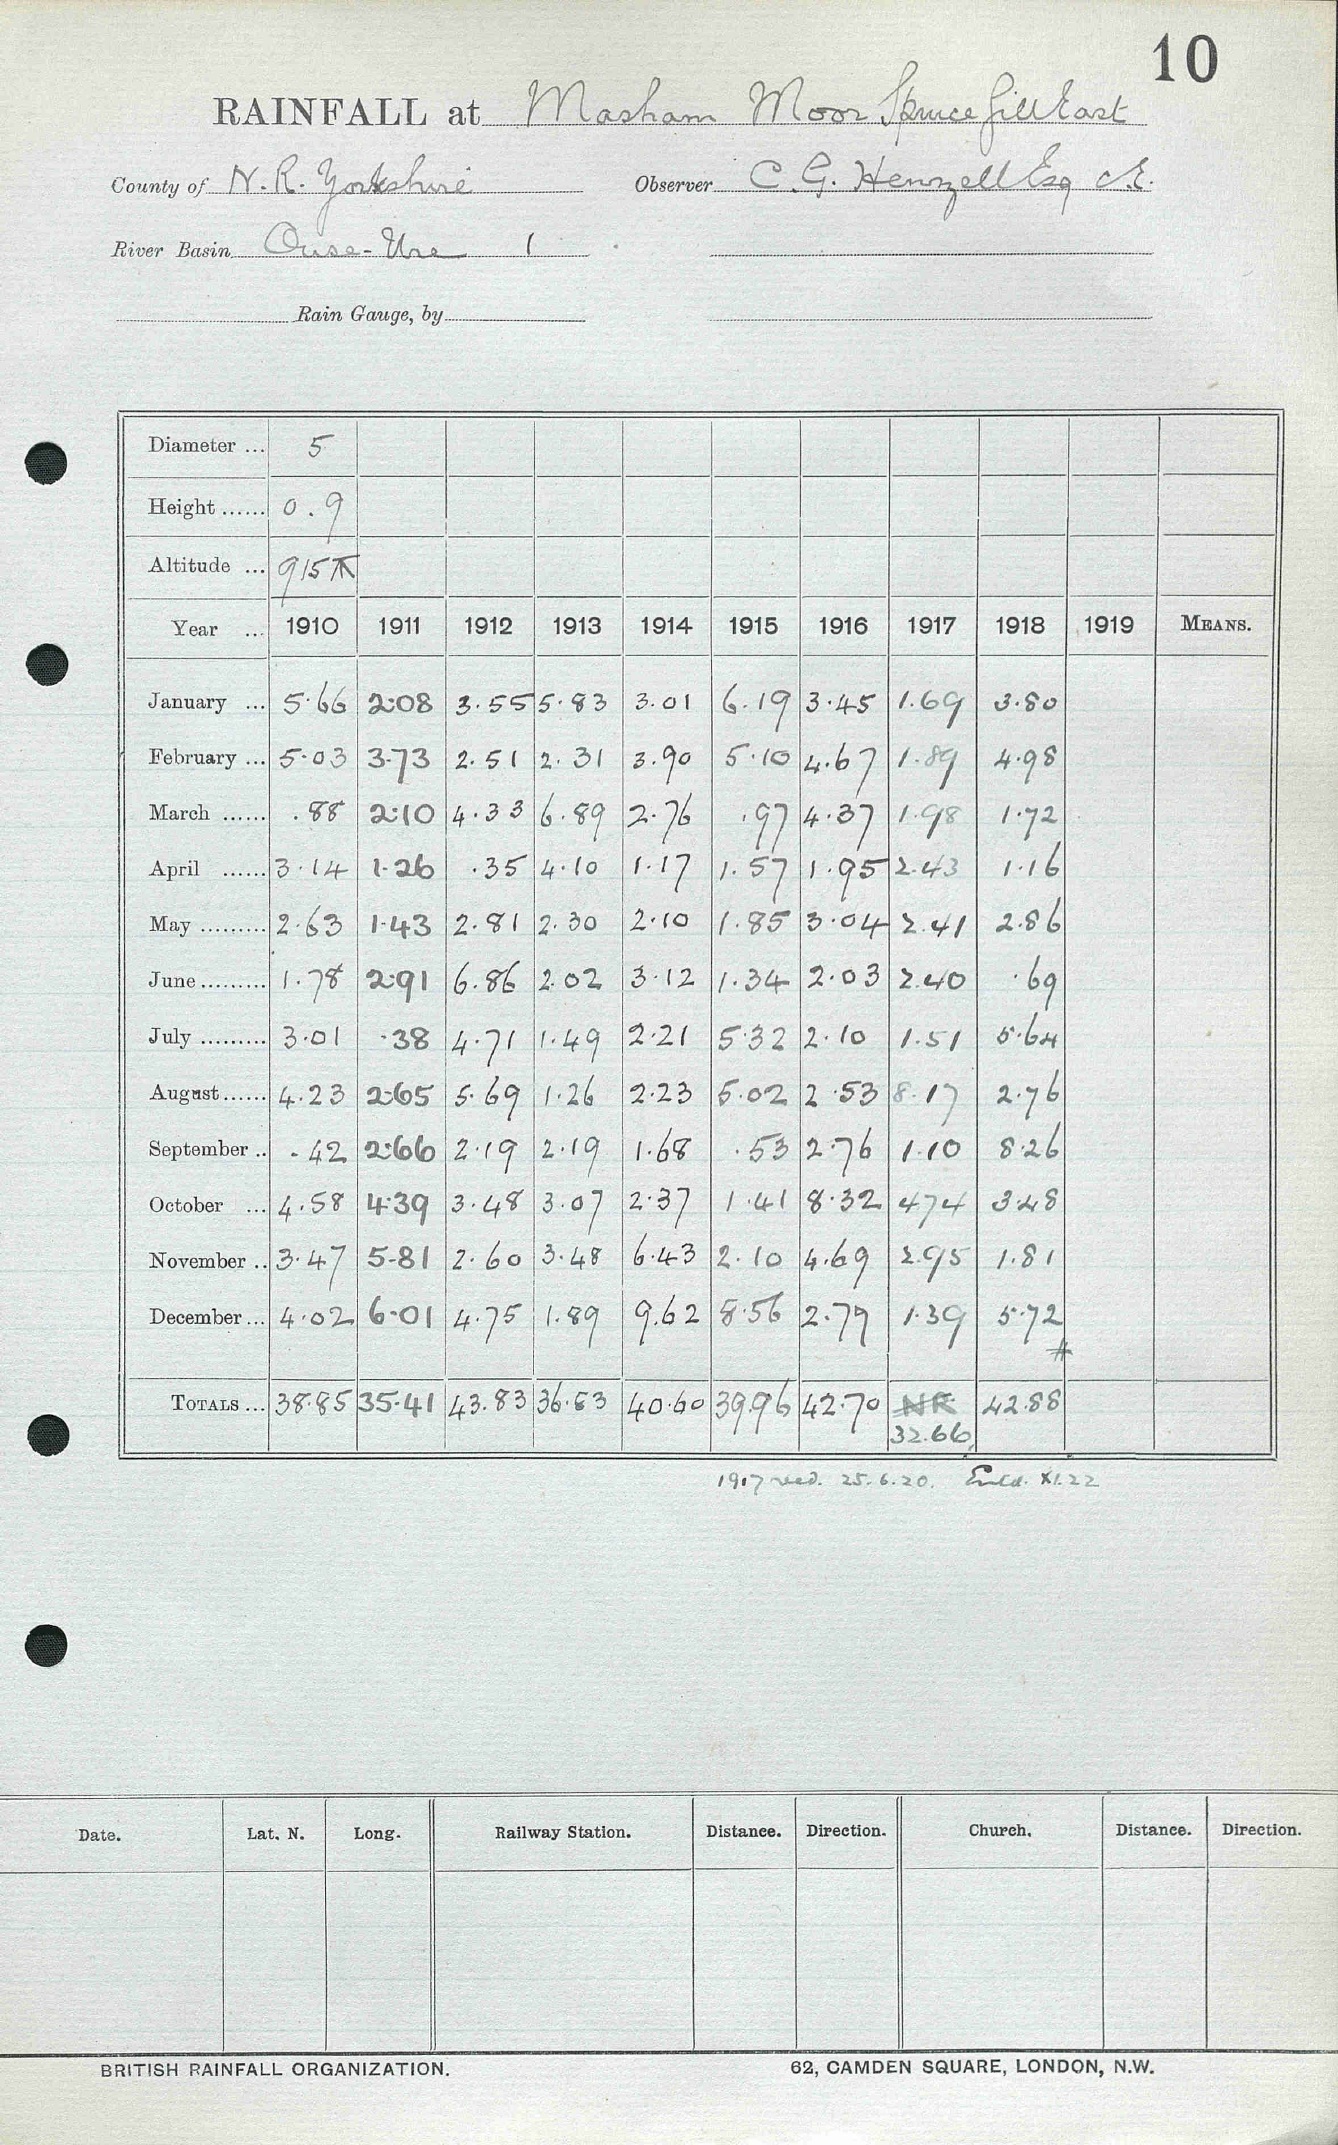 10
RAINFALL at Masham Moor Spruce Gill East
County of N. R. Yorkshire Observer C. G. Henzell Esq C.E.
River Basin Ouse-Ure 1
Rain Gauge, by
Diameter ... 5
Height ...... 0.9
Altitude ... 915
Year ... 1910 1911 1912 1913 1914 1915 1916 1917 1918 1919 MEANS.
January ... 5.66 2.08 3.55 5.83 3.01 6.19 3.45 1.69 3.80
February ... 5.03 3.73 2.51 2.31 3.90 5.10 4.67 1.89 4.98
March ...... .88 2.10 4.33 6.89 2.76 .97 4.37 1.98 1.72
April ...... 3.14 1.26 .35 4.10 1.17 1.57 1.95 2.43 1.16
May ......... 2.63 1.43 2.81 2.30 2.10 1.85 3.04 2.41 2.86
June ......... 1.78 2.91 6.86 2.02 3.12 1.34 2.03 2.40 .69
July ......... 3.01 .38 4.71 1.49 2.21 5.32 2.10 1.51 5.64
August ...... 4.23 2.65 5.69 1.26 2.23 5.02 2.53 8.17 2.76
September .. .42 2.66 2.19 2.19 1.68 .53 2.76 1.10 8.26
October ... 4.58 4.39 3.48 3.07 2.37 1.41 8.32 4.74 3.48
November .. 3.47 5.81 2.60 3.48 6.43 2.10 4.69 2.95 1.81
December ... 4.02 6.01 4.75 1.89 9.62 8.56 2.79 1.39 5.72
#
TOTALS ... 38.85 35.41 43.83 36.83 40.60 39.96 42.70 NR 42.88
32.66
1917 recd. 25.6.20. Entd. XI.22
Date. Lat. N. Long. Railway Station. Distance. Direction. Church. Distance. Direction.
BRITISH RAINFALL ORGANIZATION. 62, CAMDEN SQUARE, LONDON, N.W.